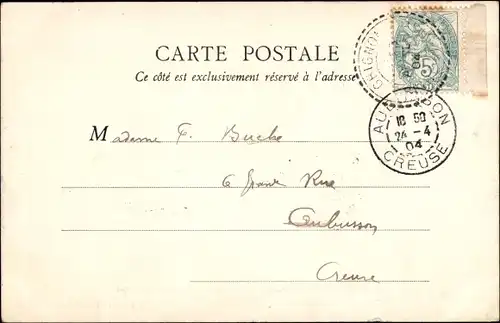 CARTE POSTALE
Ce côté est exclusivement réservé à l'adresse
5
04
AUBUSSON
18 50
24 - 4
04
CREUSE
Madame F. Buche
6 grande Rue
Aubusson
Creuse